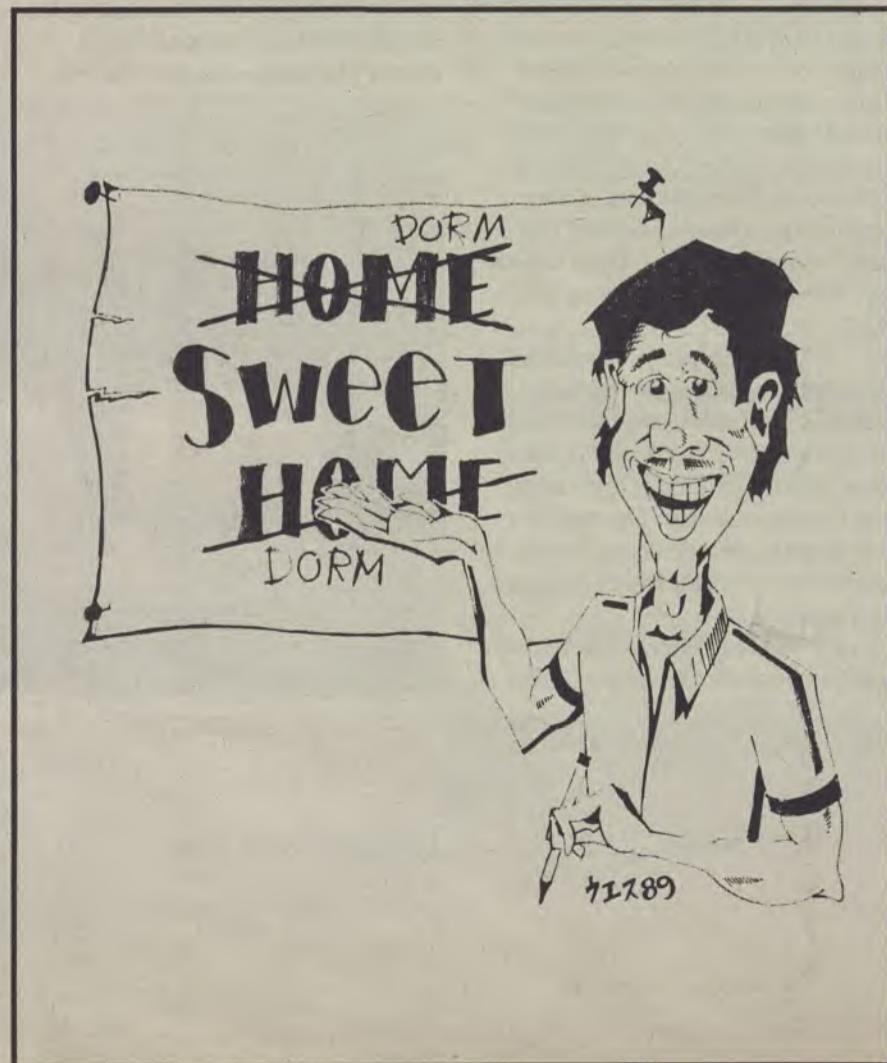 DORM
HOME
SWeeT
HOME
DORM
ウエス89